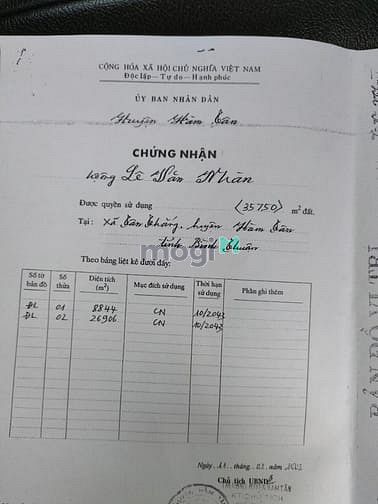 CỘNG HÒA XÃ HỘI CHỦ NGHĨA VIỆT NAM
Độc lập - Tự do - Hạnh phúc
ỦY BAN NHÂN DÂN
Huyện Hàm Tân
CHỨNG NHẬN
Lê Văn Nhân
Được quyền sử dụng (35750) m² đất.
Tại : Xã Tân Thắng, huyện Hàm Tân
tỉnh Bình Thuận
mogi
Theo bảng liệt kê dưới đây:
Số tờ bản đồ Số thửa Diện tích (m²) Mục đích sử dụng Thời hạn sử dụng Phần ghi thêm
ĐL 01 8844 CN 10/2043
ĐL 02 26906 CN 10/2043
Ngày 11 tháng 03 năm
Chủ tịch UBND
BẢN ĐỒ VỊ TRÍ